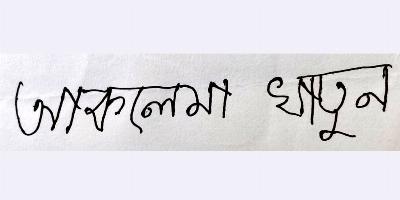 আকলেমা খাতুন